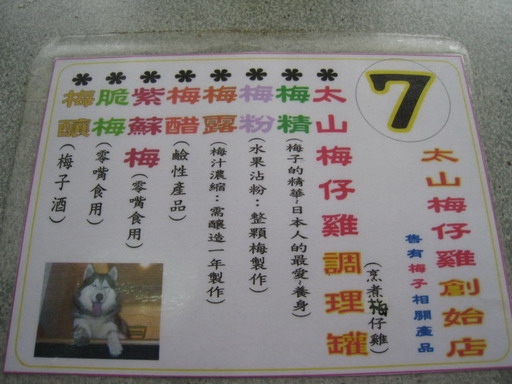 7
太山梅仔雞創始店
售有梅子相關產品
*太山梅仔雞調理罐
(烹煮梅仔雞)
*梅精(梅子的精華~日本人的最愛~養身)
*梅粉(水果沾粉:整顆梅製作)
*梅露(梅汁濃縮:需釀造一年製作)
*梅醋(鹼性產品)
*紫蘇梅(零嘴食用)
*脆梅(零嘴食用)
*梅釀(梅子酒)